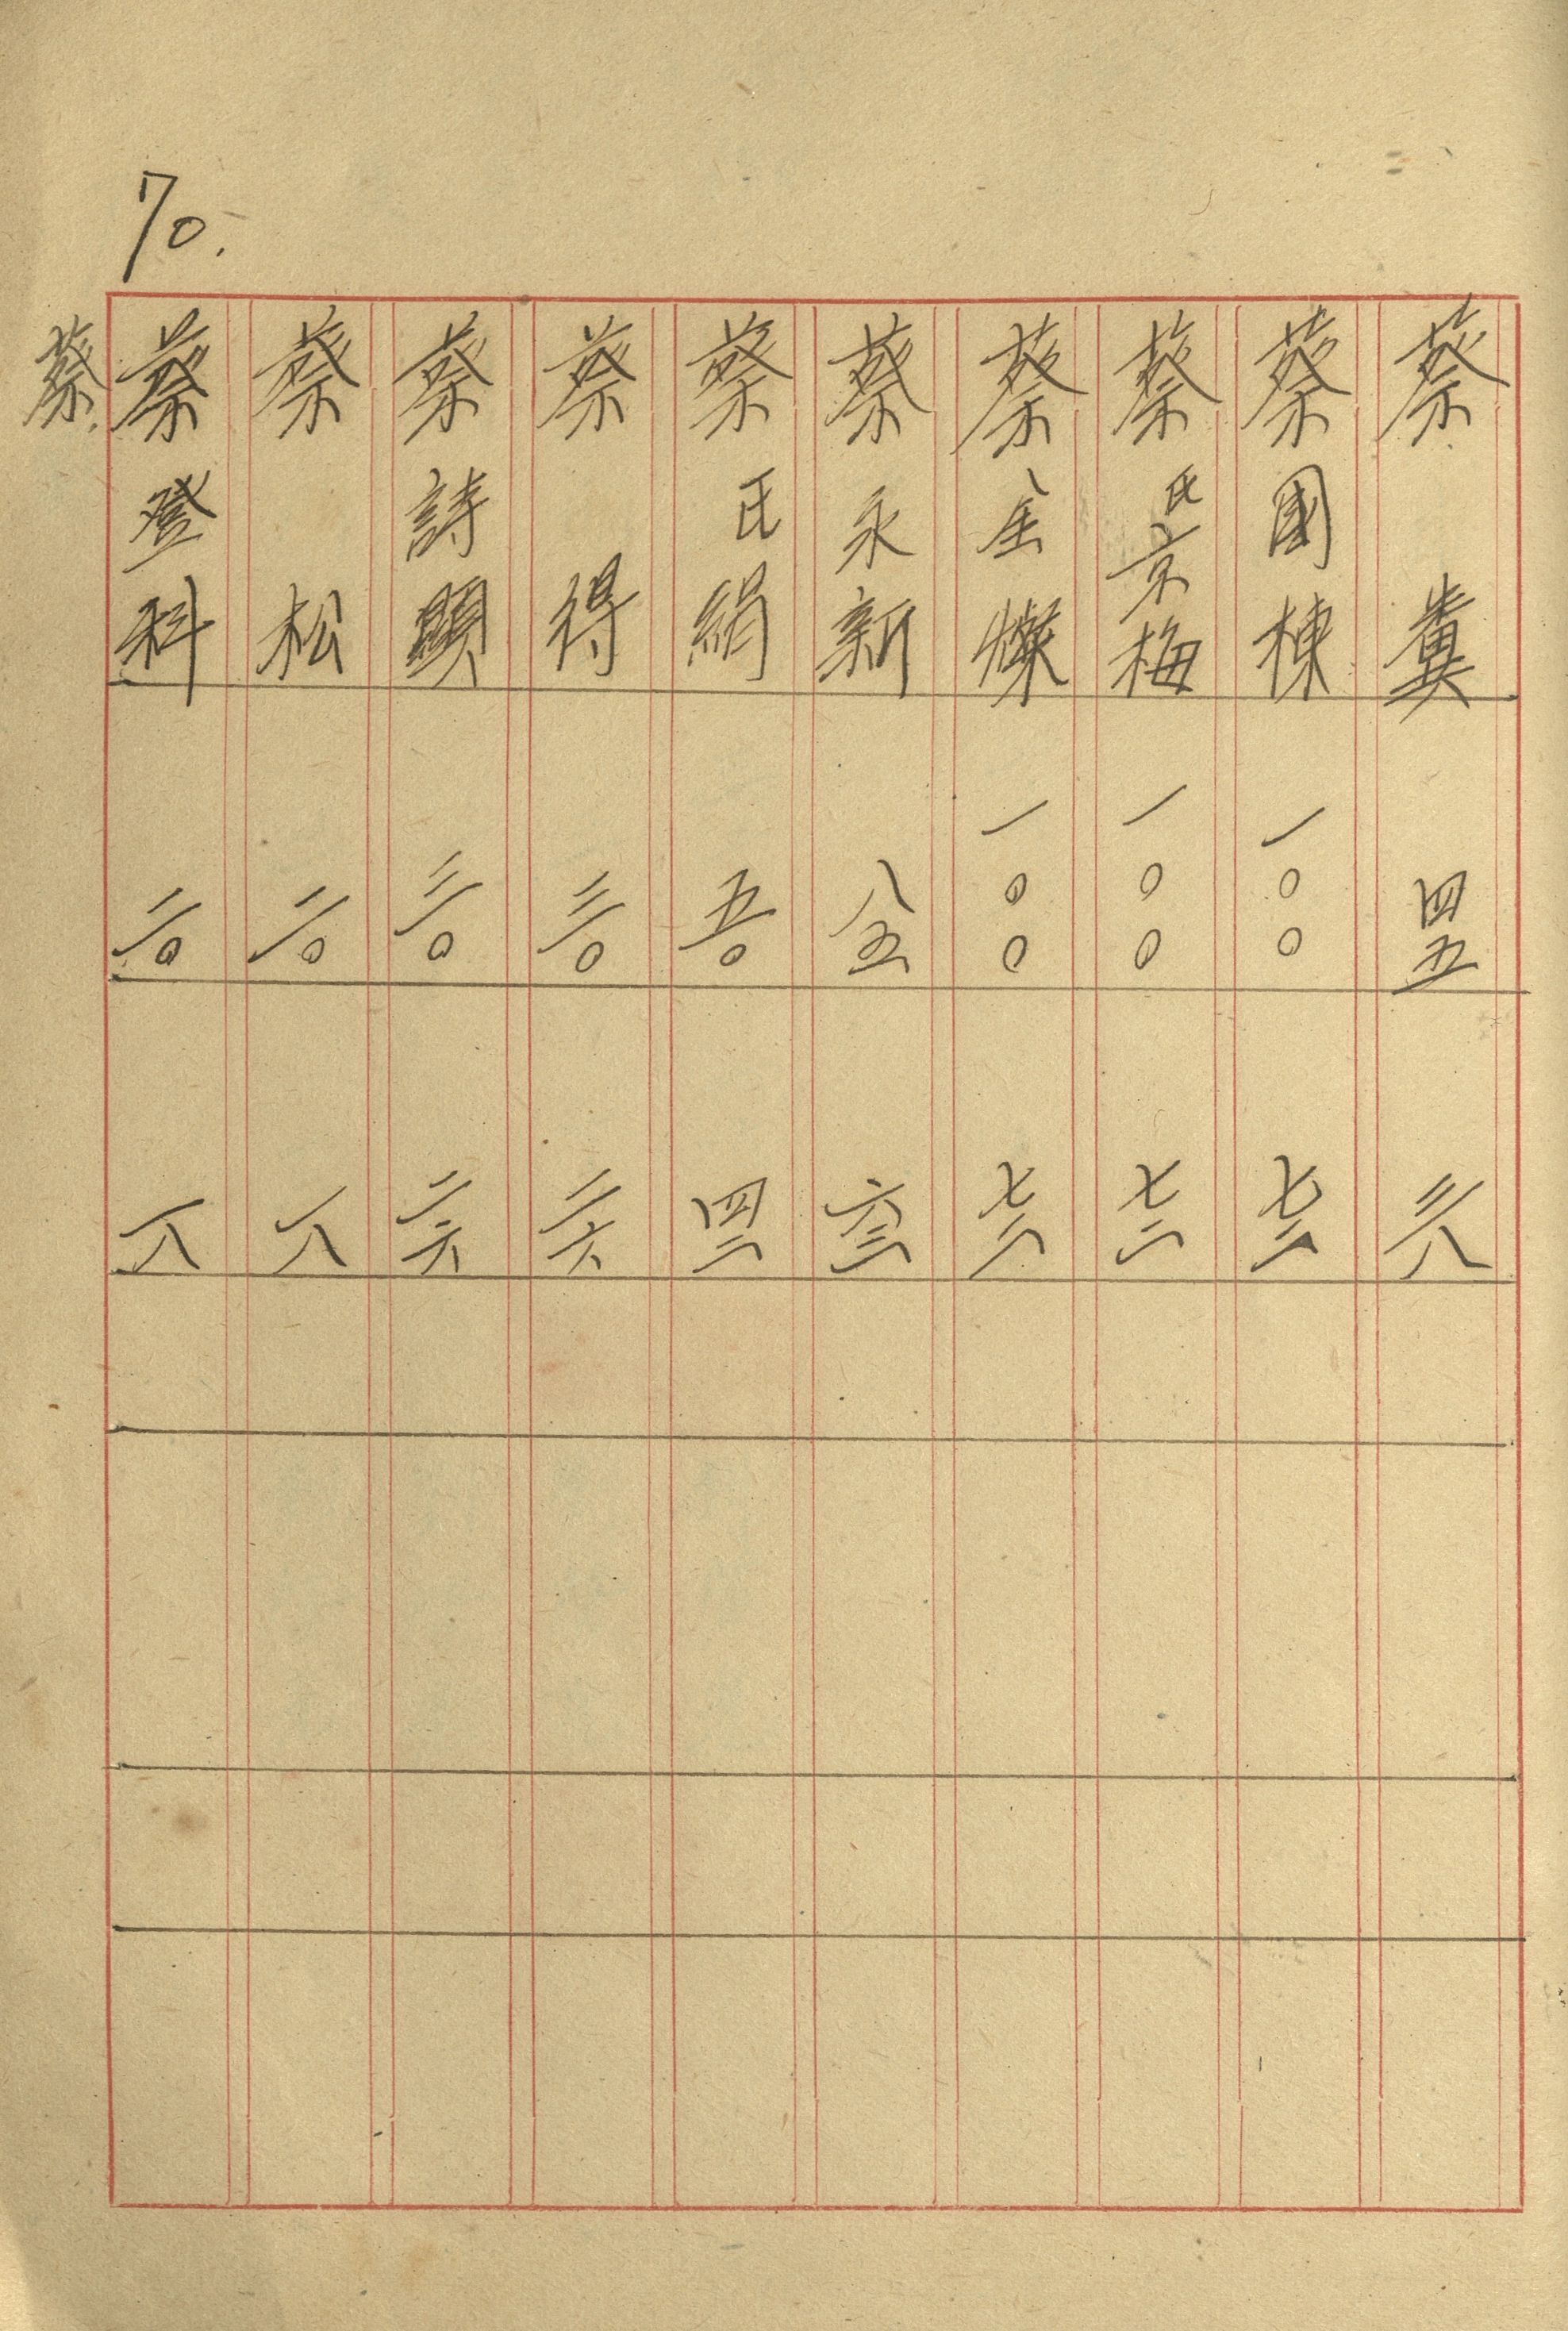 70.
蔡糞 四五 三八
蔡國棟 一〇〇 七二
蔡氏京梅 一〇〇 七二
蔡金燦 一〇〇 七二
蔡永新 八五 六二
蔡氏絹 五〇 四二
蔡得 三〇 二六
蔡詩顕 三〇 二六
蔡松 二〇 一八
蔡登科 二〇 一八
蔡